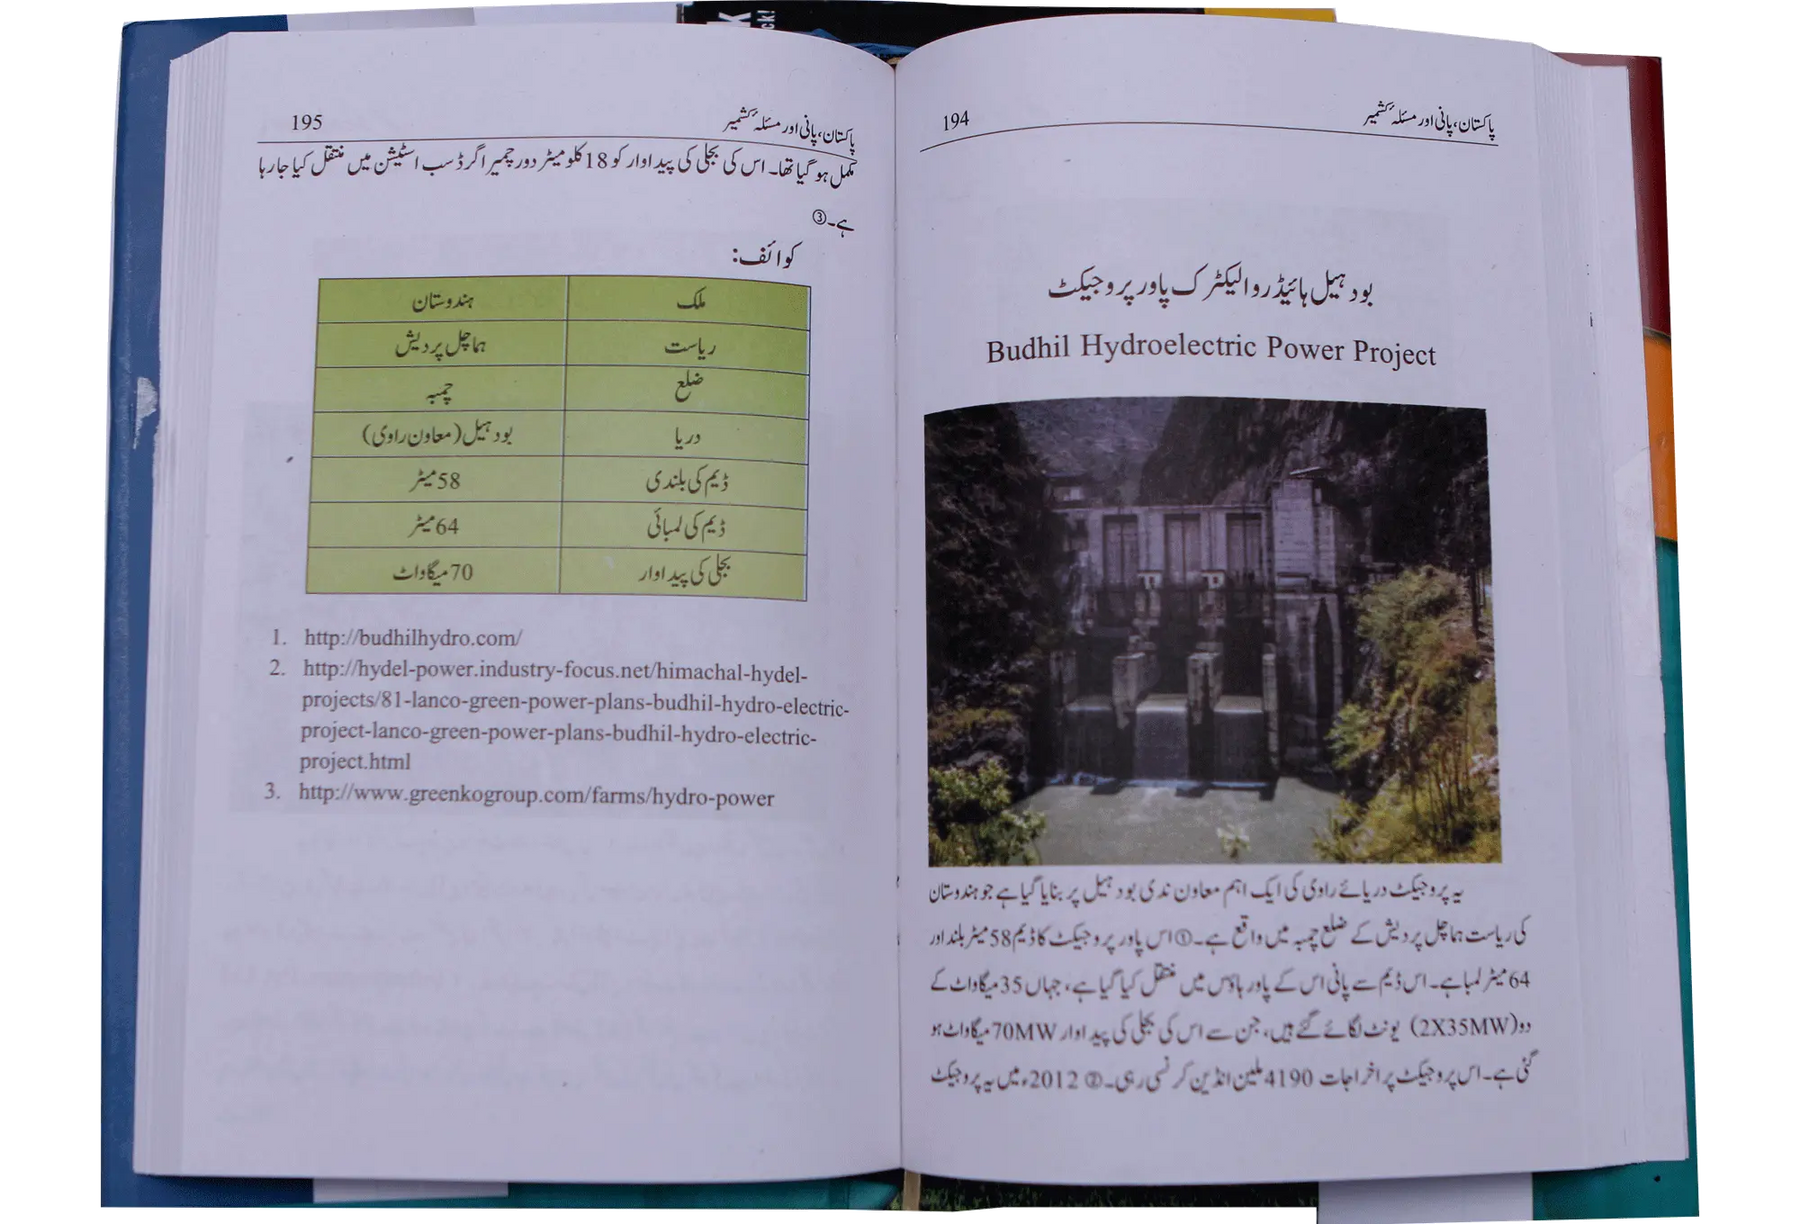 پاکستان، پانی اور مسئلہ کشمیر 194
بودہیل ہائیڈرو الیکٹرک پاور پروجیکٹ
Budhil Hydroelectric Power Project
یہ پروجیکٹ دریائے راوی کی ایک اہم معاون ندی بودہیل پر بنایا گیا ہے جو ہندوستان
کی ریاست ہماچل پردیش کے ضلع چمبہ میں واقع ہے۔① اس پاور پروجیکٹ کا ڈیم 58 میٹر بلند اور
64 میٹر لمبا ہے۔ اس ڈیم سے پانی اس کے پاور ہاؤس میں منتقل کیا گیا ہے، جہاں 35 میگاواٹ کے
دو (2X35MW) یونٹ لگائے گئے ہیں، جن سے اس کی بجلی کی پیداوار 70MW میگاواٹ ہو
گئی ہے۔ اس پروجیکٹ پر اخراجات 4190 ملین انڈین کرنسی رہی۔② 2012ء میں یہ پروجیکٹ
پاکستان، پانی اور مسئلہ کشمیر 195
مکمل ہو گیا تھا۔ اس کی بجلی کی پیداوار کو 18 کلو میٹر دور چمیرا گرڈ سب اسٹیشن میں منتقل کیا جا رہا
ہے۔③
کوائف:
ملک ہندوستان
ریاست ہماچل پردیش
ضلع چمبہ
دریا بودہیل (معاون راوی)
ڈیم کی بلندی 58 میٹر
ڈیم کی لمبائی 64 میٹر
بجلی کی پیداوار 70 میگاواٹ
1. http://budhilhydro.com/
2. http://hydel-power.industry-focus.net/himachal-hydel-
projects/81-lanco-green-power-plans-budhil-hydro-electric-
project-lanco-green-power-plans-budhil-hydro-electric-
project.html
3. http://www.greenkogroup.com/farms/hydro-power